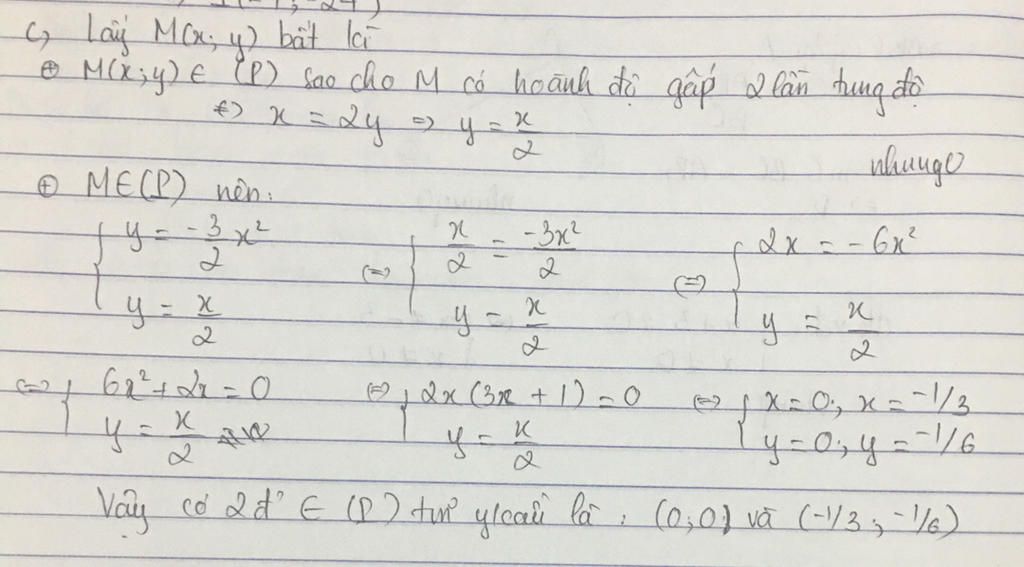 c, Lấy M(x; y) bất kì
⊕ M(x;y) ∈ (P) sao cho M có hoành độ gấp 2 lần tung độ
⇔ x = 2y ⇒ y = x/2
nhung0
⊕ M∈(P) nên:
{ y = -3/2 x² ; y = x/2 ⇔ { x/2 = -3x²/2 ; y = x/2 ⇔ { 2x = -6x² ; y = x/2
⇔ { 6x² + 2x = 0 ; y = x/2 ⇔ { 2x(3x + 1) = 0 ; y = x/2 ⇔ { x=0; x = -1/3 ; y=0; y = -1/6
Vậy có 2 đ' ∈ (P) tm y/cầu là : (0;0) và (-1/3 ; -1/6)